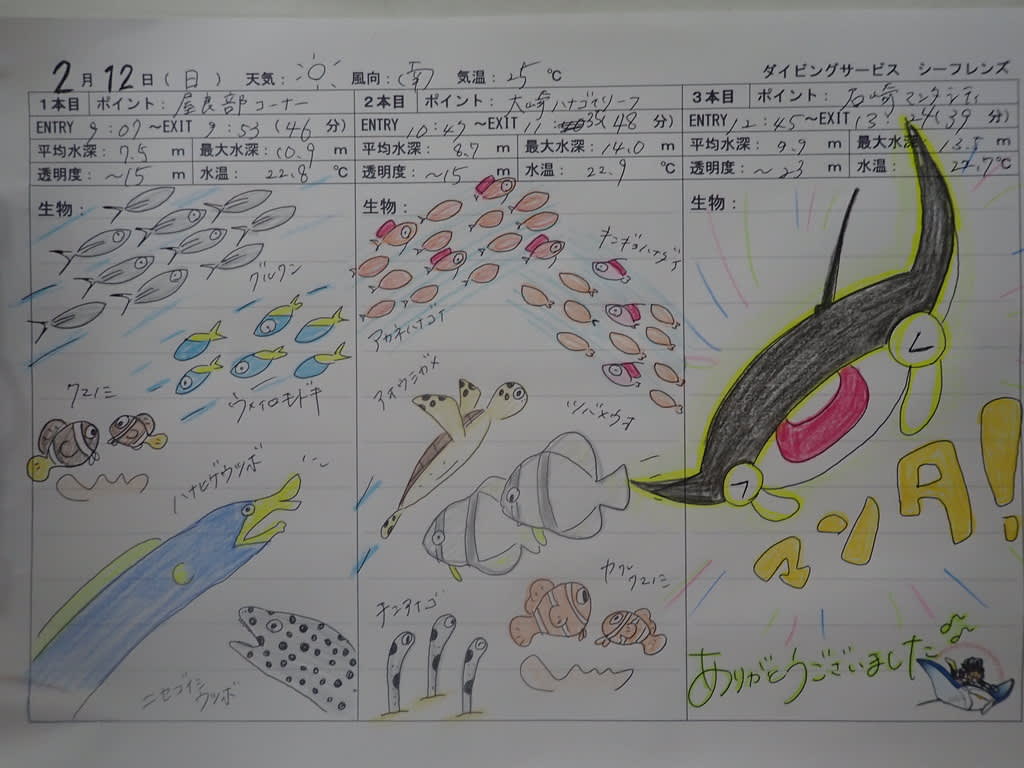 2月12日(日) 天気: 風向:(南) 気温:25℃ ダイビングサービス シーフレンズ
1本目 ポイント: 屋良部コーナー
ENTRY 9:07~EXIT 9:53(46分)
平均水深: 7.5 m 最大水深: 10.9 m
透明度: ~15 m 水温: 22.8 ℃
生物:
グルクン
ウメイロモドキ
クマノミ
ハナヒゲウツボ
ニセゴイシ
ウツボ
2本目 ポイント: 大崎ハナゴイリーフ
ENTRY 10:47~EXIT 11:35(48分)
平均水深: 8.7 m 最大水深: 14.0 m
透明度: ~15 m 水温: 22.9 ℃
生物:
キンギョハナダイ
アカネハナゴイ
アオウミガメ
ツバメウオ
チンアナゴ
カクレ
クマノミ
3本目 ポイント: 石崎マンタシティ
ENTRY 12:45~EXIT 13:24(39分)
平均水深: 9.9 m 最大水深: 13.5 m
透明度: ~23 m 水温: 22.7℃
生物:
マンタ!
ありがとうございました